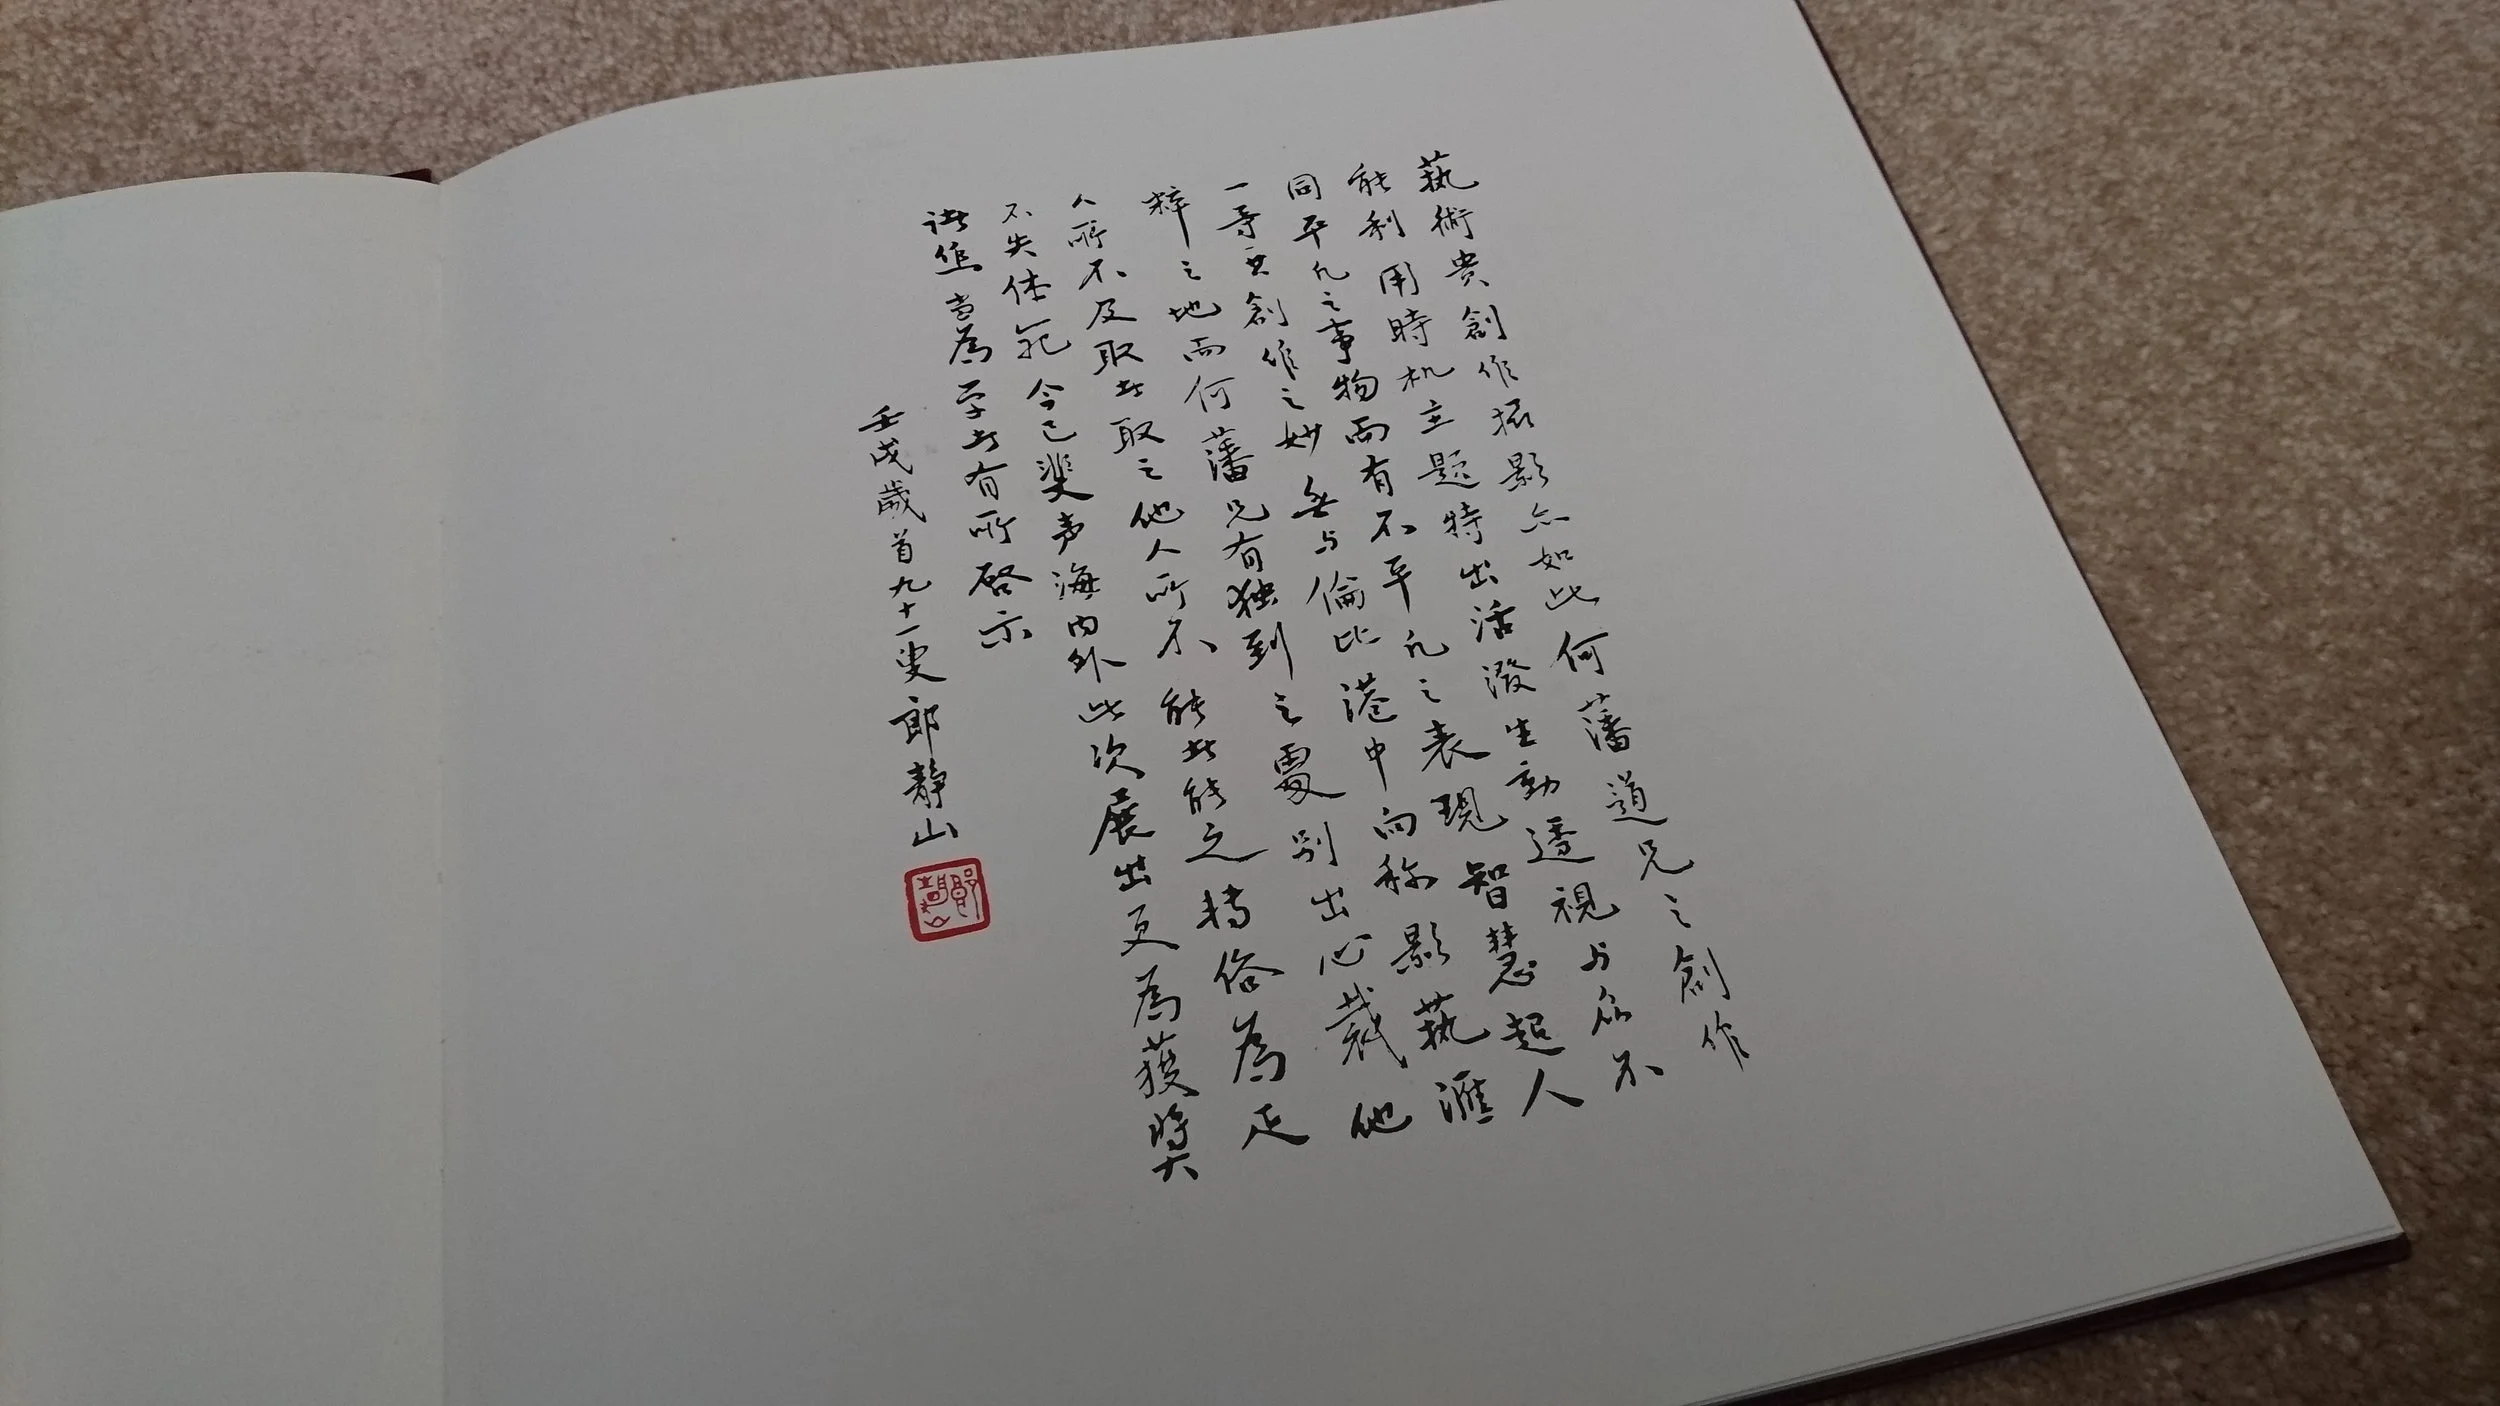 藝術貴創作攝影亦如此何藩道兄之創作
能利用時机主題特出活潑生動透視与众不
同平凡之事物而有不平凡之表現智慧超人
一等其創作之妙無与倫比港中向称影藝滙
粹之地而何藩兄有独到之處別出心裁他
人所不及取者取之他人所不能者能之特俗為足
不失体範今已斐声海内外此次展出更為獲奬
諸作当為学者有所啓示
壬戌歲首九十一叟郎静山